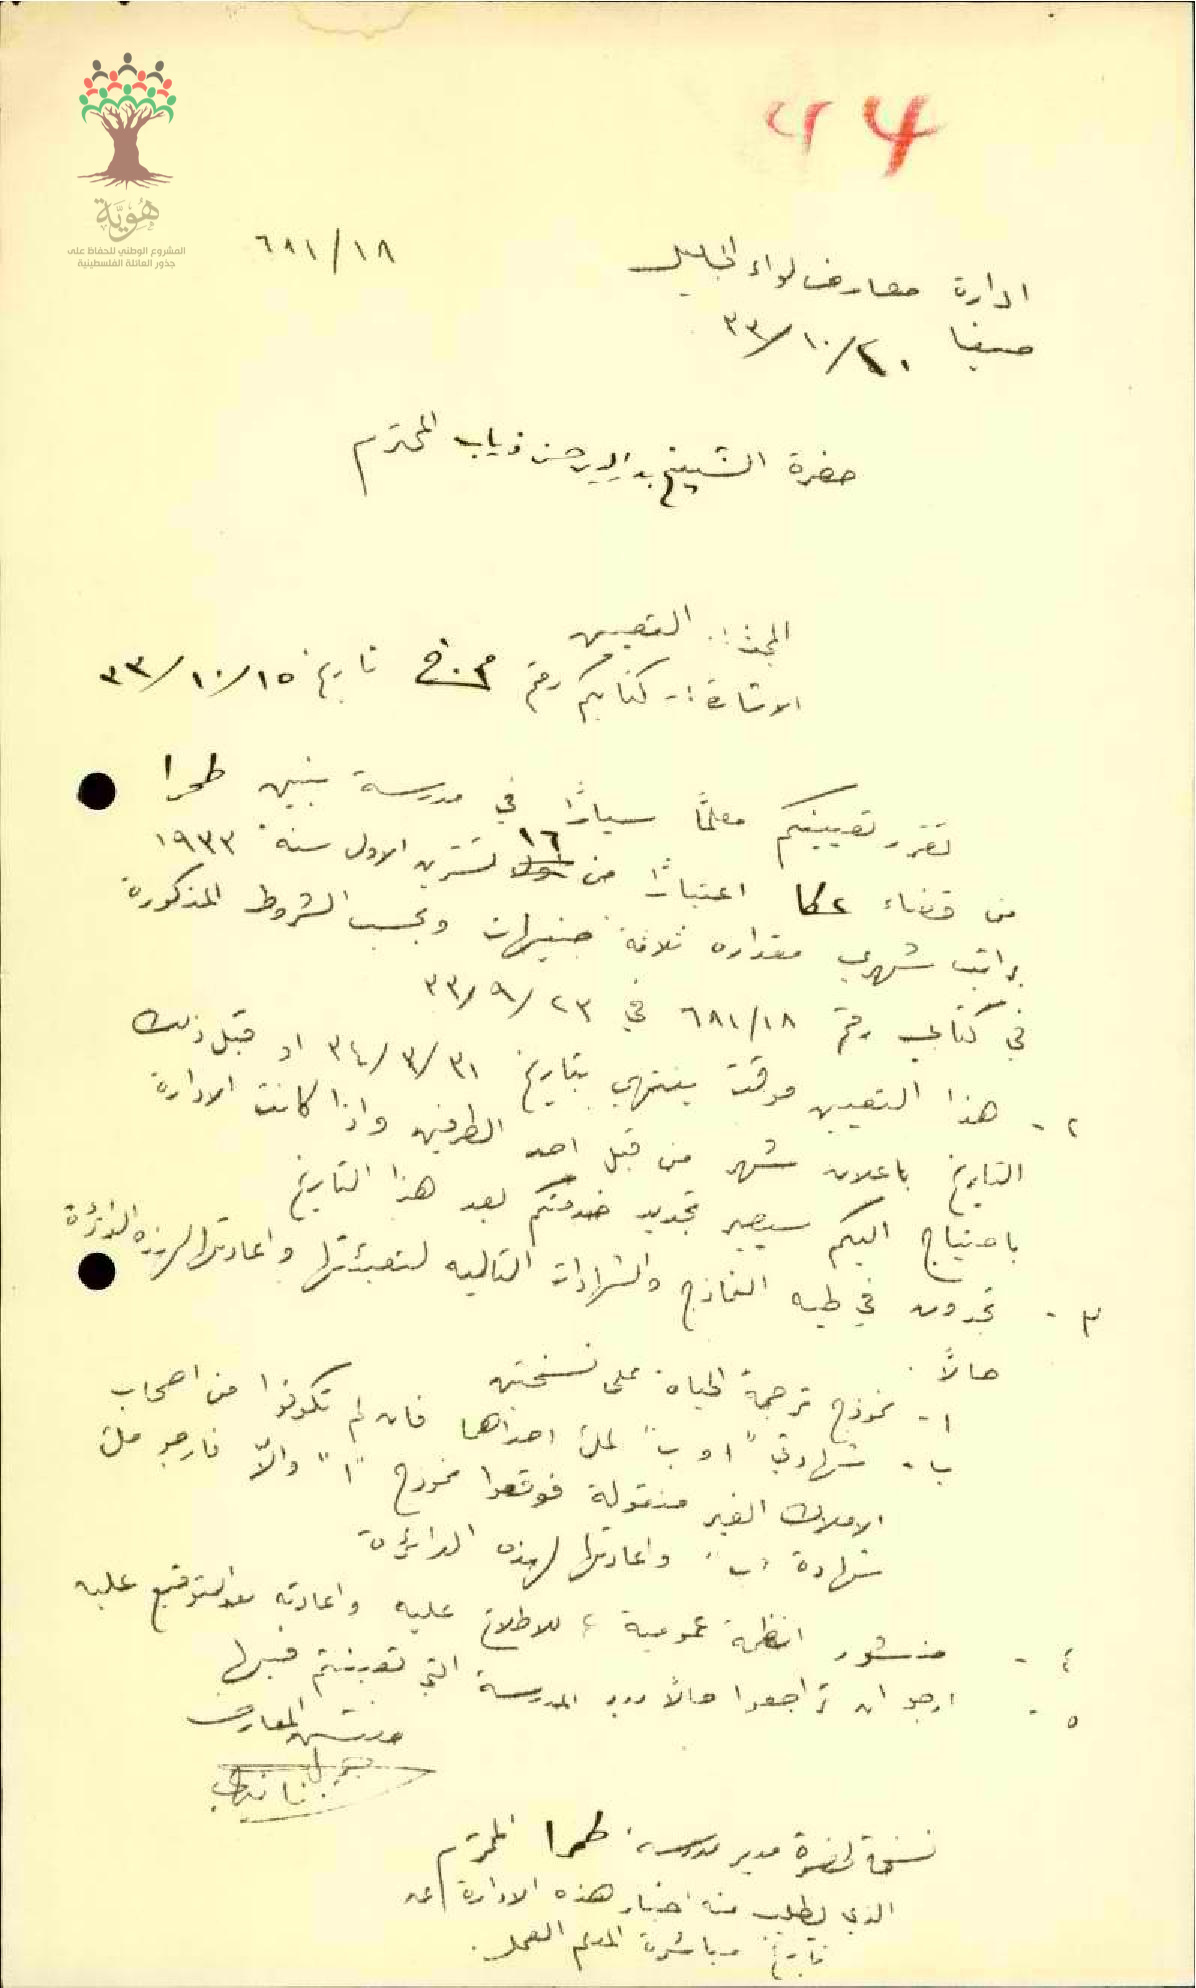 هُوِيَّة
المشروع الوطني للحفاظ على
جذور العائلة الفلسطينية
٦٨١/١٨
ادارة معارف لواء الجليل
٣٣/١٠/٢٠
حضرة الشيخ ذياب المحترم
المبحث :. التعيين
الاشارة :- كتابكم رقم تاريخ ٣٣/١٠/١٥
تقرر تعيينكم معلمًا سيارًا في مدرسة بنين طمرا
من قضاء عكا اعتبارًا من ١٦ تشرين الاول سنة ١٩٣٣
براتب شهري مقداره ثلاثة جنيهات وبحسب الشروط المذكورة
في كتابي رقم ٦٨١/١٨ في ٣٣/٩/٢٣
٢- هذا التعيين موقت ينتهي بتاريخ ٣٤/٣/٣١ او قبل ذلك
التاريخ باعلان شهر من قبل احد الطرفين واذا كانت الادارة
باحتياج اليكم سيصير تجديد خدمتكم بعد هذا التاريخ
٣- تجدون في طيه النماذج والشهادات التاليه لتعبئتها واعادتها لهذه الدائرة
حالاً.
١- نموذج ترجمة الحياة على نسختين
ب- شهادتي "ا و ب" لملئ احداهما فان لم تكونوا من اصحاب
الاملاك الغير منقولة فوقعوا نموذج "ا" والاّ فارجو ملئ
شهادة "ب" واعادتها لهذه الدائرة
٤- منشور انظمة عمومية للاطلاع عليه واعادته بعد التوقيع عليه
٥- ارجو ان تراجعوا حالاً المدرسة التي تعينتم فيها
مفتش المعارف
نسخة لحضرة مدير مدرسة طمرا المحترم
الذي يطلب منه اخبار هذه الادارة عن
تاريخ مباشرة المعلم العمل.